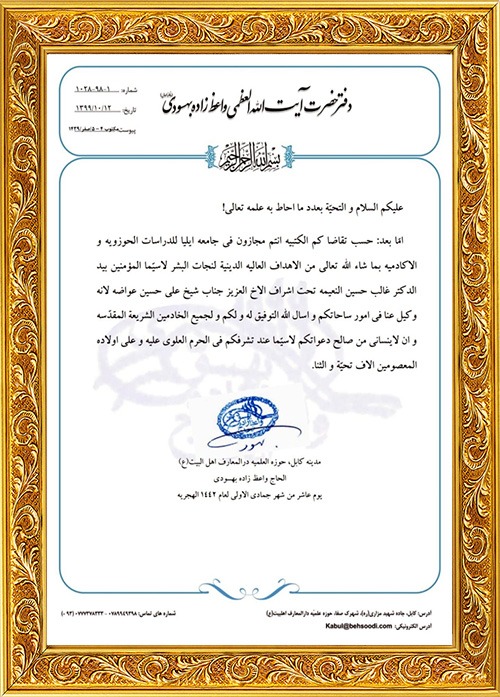 دفتر حضرت آیت الله العظمی واعظ زاده بهسودی
شماره: ۱-۹۸-۱۰۲۸
تاریخ: ۱۳۹۹/۱۰/۱۲
پیوست مکتوب ۲ – ۵/صفر/۱۴۳۹
بسم الله الرحمن الرحیم
علیکم السلام و التحیّة بعدد ما احاط به علمه تعالی!
امّا بعد: حسب تقاضا کم الکتبیه انتم مجازون فی جامعه ایلیا للدراسات الحوزویه و
الاکادمیه بما شاء الله تعالی من الاهداف العالیه الدینیة لنجات البشر لاسیّما المؤمنین بید
الدکتر غالب حسین النعیمه تحت اشراف الاخ العزیز جناب شیخ علی حسین عواضه لانه
وکیل عنا فی امور ساحاتکم و اسال الله التوفیق له و لکم و لجمیع الخادمین الشریعة المقدّسه
و ان لاینسانی من صالح دعواتکم لاسیّما عند تشرفکم فی الحرم العلوی علیه و علی اولاده
المعصومین الاف تحیّة و الثنا.
مدینه کابل، حوزه العلمیه دارالمعارف اهل البیت(ع)
الحاج واعظ زاده بهسودی
یوم عاشر من شهر جمادی الاولی لعام ۱۴۴۲ الهجریه
آدرس: کابل، جاده شهید مزاری(ره)، شهرک صفا، حوزه علمیّه دارالمعارف اهلبیت(ع)
شماره های تماس: ۰۷۸۹۹۴۹۳۹۸ – ۰۷۷۷۳۷۸۳۳۳ (۰۰۹۳)
آدرس الکترونیکی: Kabul@behsoodi.com